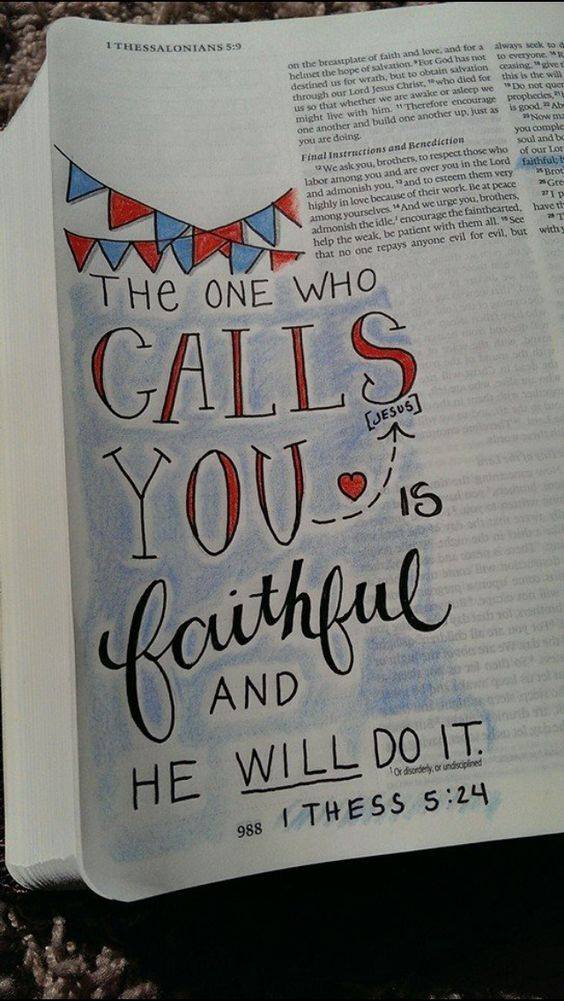 1 THESSALONIANS 5:9
on the breastplate of faith and love, and for a
helmet the hope of salvation. ⁹For God has not
destined us for wrath, but to obtain salvation
through our Lord Jesus Christ, ¹⁰who died for
us so that whether we are awake or asleep we
might live with him. ¹¹Therefore encourage
one another and build one another up, just as
you are doing.
Final Instructions and Benediction
¹²We ask you, brothers, to respect those who
labor among you and are over you in the Lord
and admonish you, ¹³and to esteem them very
highly in love because of their work. Be at peace
among yourselves. ¹⁴And we urge you, brothers,
admonish the idle,¹ encourage the fainthearted,
help the weak, be patient with them all. ¹⁵See
that no one repays anyone evil for evil, but
always seek to d
to everyone.
ceasing, ¹⁸give
this is the will
¹⁹Do not que
prophecies,
is good.
Now ma
you comple
soul and bo
of our Lor
faithful;
²⁵Brot
²⁶Gre
²⁷I p
have th
with y
THe ONE WHO
CALLS
[JESUS]
YOU IS
faithful
AND
HE WILL DO IT.
¹Or disorderly, or undisciplined
988 1 THESS 5:24